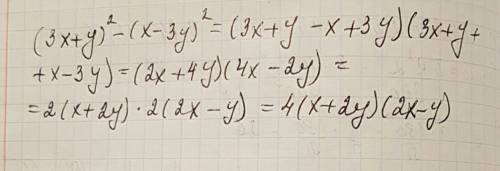 (3x+y)²-(x-3y)²=(3x+y-x+3y)(3x+y+
+x-3y)=(2x+4y)(4x-2y)=
=2(x+2y)·2(2x-y)=4(x+2y)(2x-y)